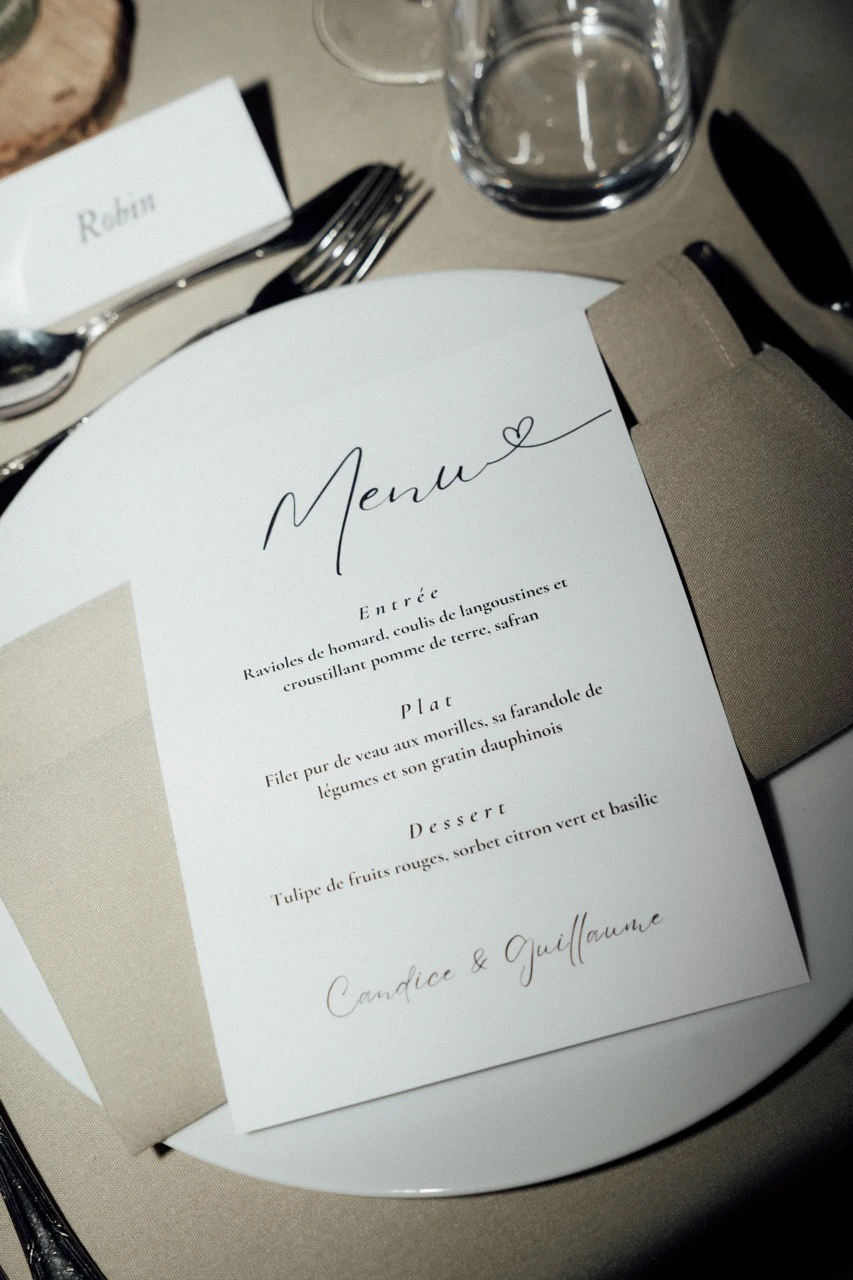 Robin
Menu
Entrée
Ravioles de homard, coulis de langoustines et
croustillant pomme de terre, safran
Plat
Filet pur de veau aux morilles, sa farandole de
légumes et son gratin dauphinois
Dessert
Tulipe de fruits rouges, sorbet citron vert et basilic
Candice & Guillaume